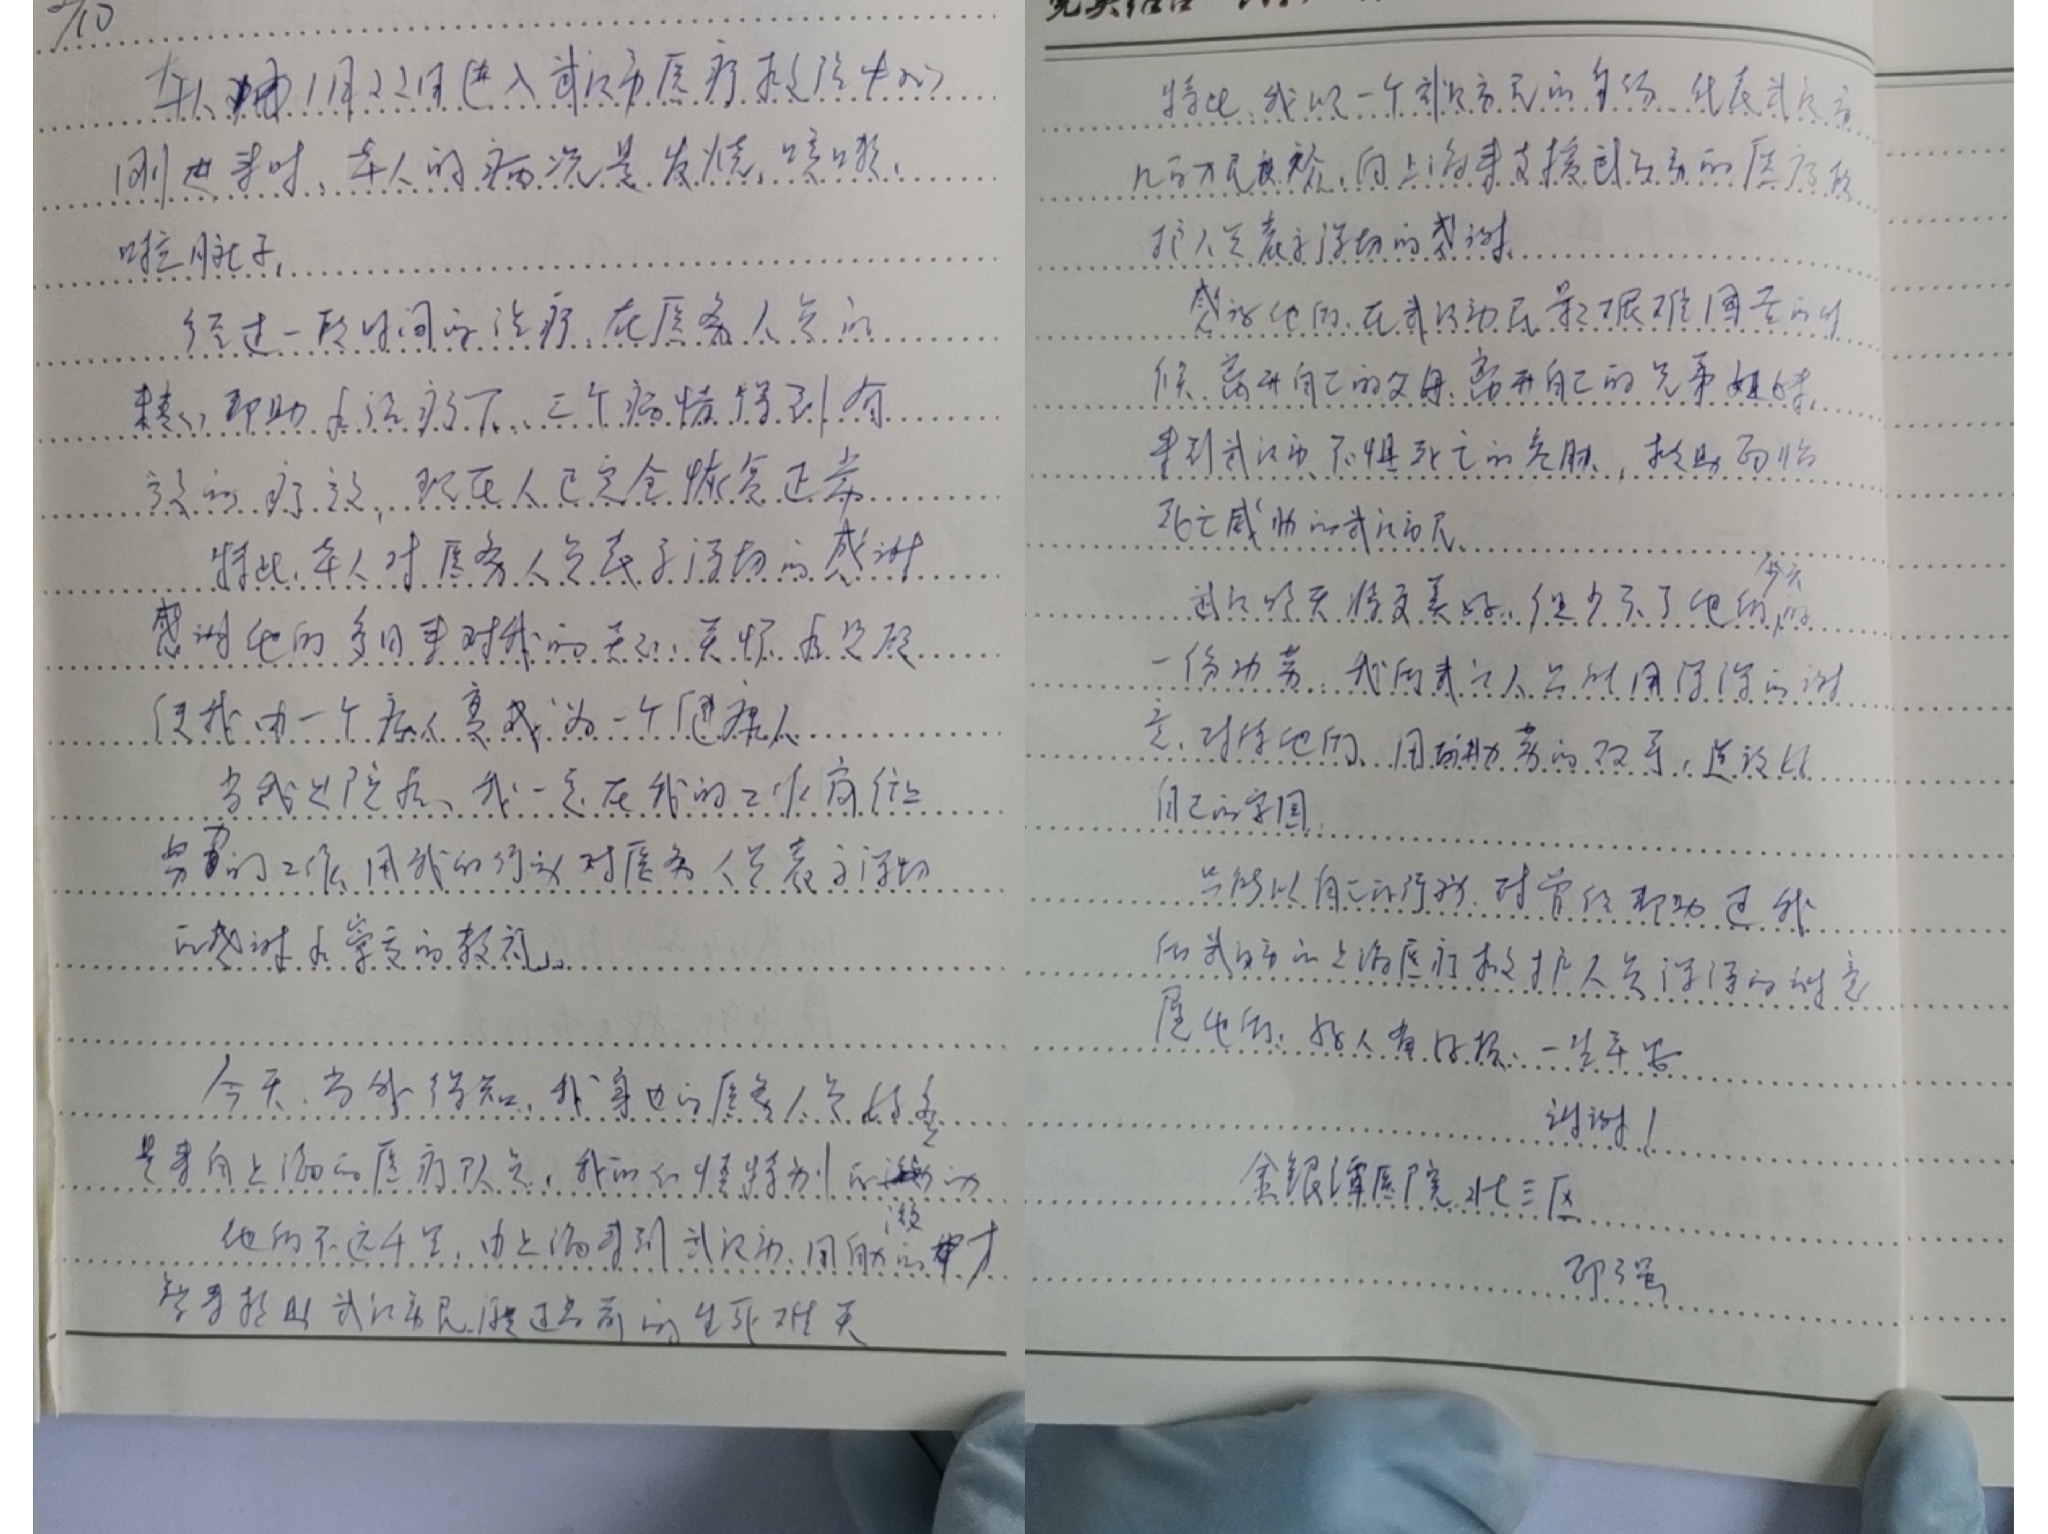 2/10
本人 1月22日进入武汉市医疗救治中心
刚进来时、本人的病况是发烧、咳嗽、
啦肚子,
经过一段时间的治疗、在医务人员的
精心帮助和治疗下、三个病情得到有
效的疗效,现在人已完全恢复正常
特此、本人对医务人员表示深切的感谢
感谢他们多日来对我的关心、关怀和照顾
使我由一个病人变成为一个健康人
当我出院后、我一定在我的工作岗位上
努力的工作、用我的行动对医务人员表示深切
的感谢和崇高的敬礼。
今天、当我得知、我身边的医务人员
是来自上海的医疗队员、我的心情特别的激动
他们不远千里,由上海来到武汉市、用自己的才
智来救助武汉市民、度过当前的生死难关
特此、我以一个武汉市民的身份、代表武汉市
几百万民众、向上海来支援武汉市的医疗救
护人员表示深切的感谢。
感谢他们、在武汉市民最艰难困苦的时
候、离开自己的父母、离开自己的兄弟姐妹,
来到武汉市、不惧死亡的危胁,救助面临
死亡威胁的武汉市民、
武汉明天将更美好、但少不了他们今天的
一份功劳、我们武汉人只能用深深的谢
意、对待他们、用勤劳的双手,建设好
自己的家园
只能以自己的行动、对曾经帮助过我
们武汉市的上海医疗救护人员深深的谢意
愿他们、好人有好报、一生平安
谢谢!
金银潭医院北三区
邓强